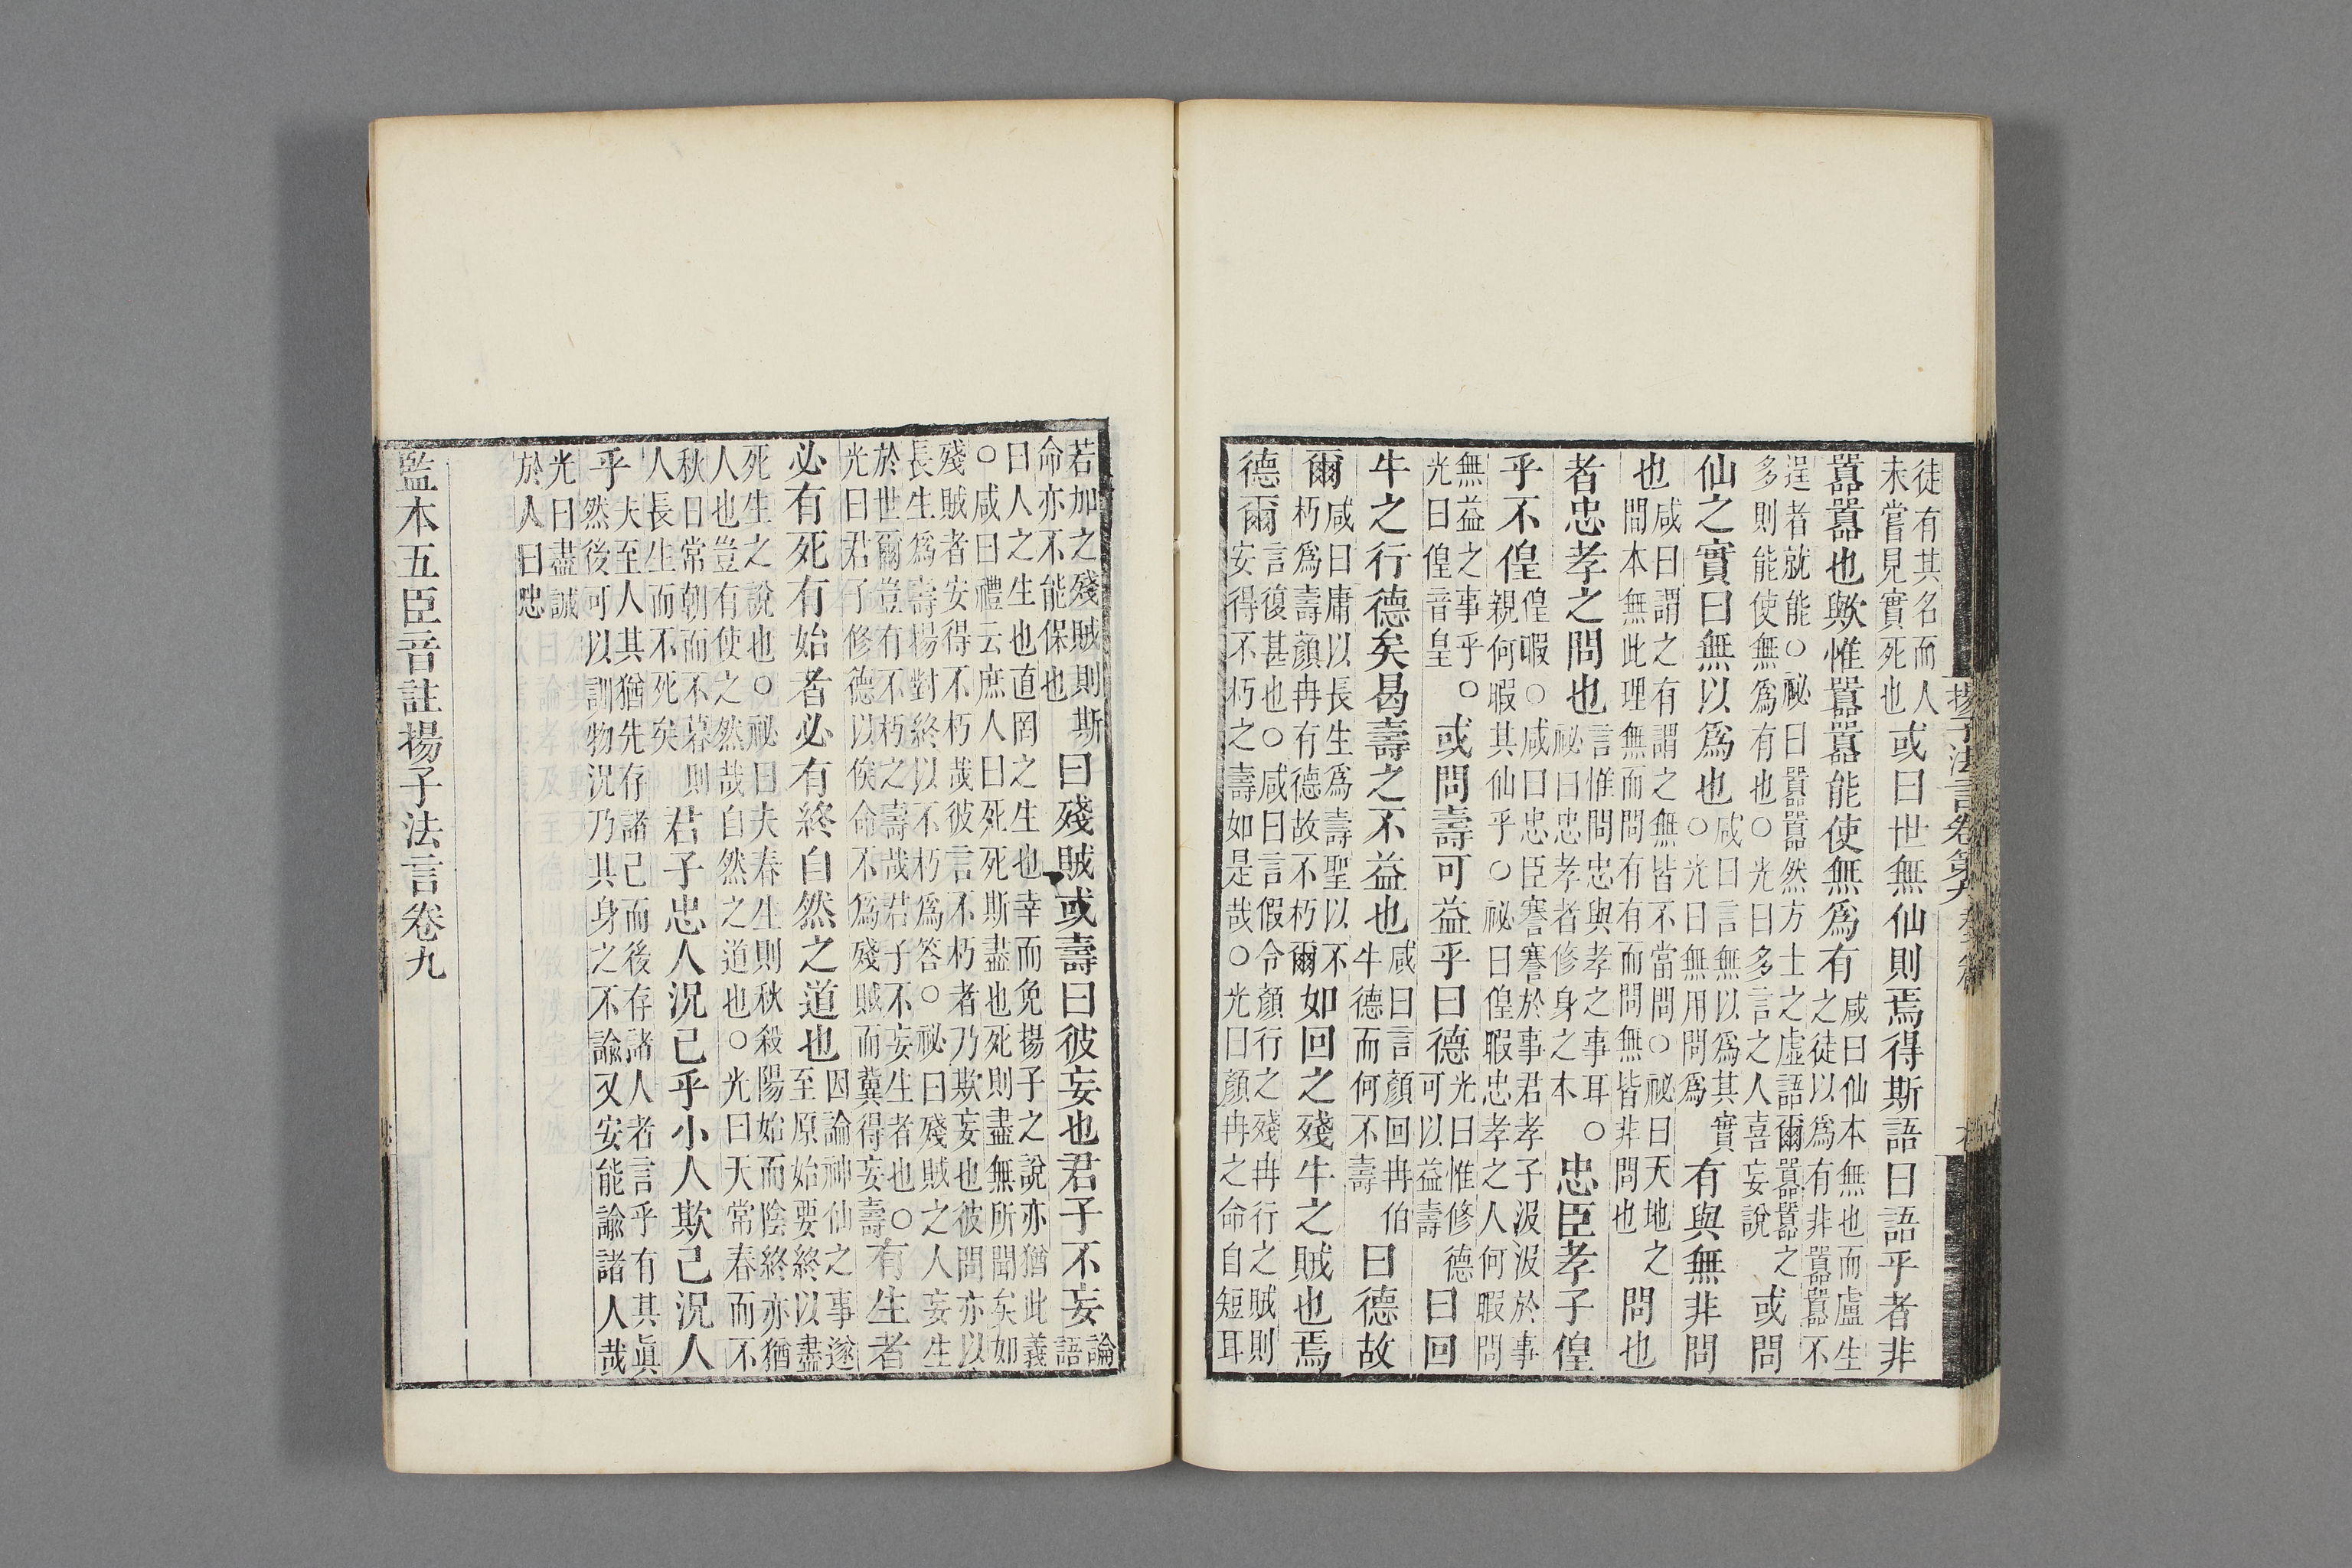 揚子法言卷第九
徒有其名而人
未嘗見實死也
或曰世無仙則焉得斯語曰語乎者非
囂囂也歟惟囂囂能使無爲有
咸曰仙本無也而盧生
之徒以爲有非囂囂不
逞者就能○祕曰囂囂然方士之虛語爾囂囂之
多則能使無爲有也○光曰多言之人喜妄說
或問
仙之實曰無以爲也
咸曰言無以爲其實
○光曰無用問爲
有與無非問
也
咸曰謂之有謂之無皆不當問○祕曰天地之
間本無此理無而問有有而問無皆非問也
問也
者忠孝之問也
言惟問忠與孝之事耳○
祕曰忠孝者修身之本
忠臣孝子偟
乎不偟
偟暇○咸曰忠臣謇謇於事君孝子汲汲於事
親何暇其仙乎○祕曰偟暇忠孝之人何暇問
無益之事乎○
光曰偟音皇
或問壽可益乎曰德
光曰惟修德
可以益壽
曰回
牛之行德矣曷壽之不益也
咸曰言顏回冉伯
牛德而何不壽
曰德故
爾
咸曰庸以長生爲壽聖以不
朽爲壽顏冉有德故不朽爾
如回之殘牛之賊也焉
德爾
言復甚也○咸曰言假令顏行之殘冉行之賊則
安得不朽之壽如是哉○光曰顏冉之命自短耳
若加之殘賊則斯
命亦不能保也
曰殘賊或壽曰彼妄也君子不妄
論
語
曰人之生也直罔之生也幸而免揚子之說亦猶此義
○咸曰禮云庶人曰死死斯盡也死則盡無所聞矣如
殘賊者安得不朽哉彼言不朽者乃欺妄也彼問亦以
長生爲壽揚對終以不朽爲答○祕曰殘賊之人妄生
於世爾豈有不朽之壽哉君子不妄生者也○
光曰君子修德以俟命不爲殘賊而冀得妄壽
有生者
必有死有始者必有終自然之道也
因論神仙之事遂
至原始要終以盡
死生之說也○祕曰夫春生則秋殺陽始而陰終亦猶
人也豈有使之然哉自然之道也○光曰天常春而不
秋日常朝而不暮則
人長生而不死矣
君子忠人況己乎小人欺己況人
乎
夫至人其猶先存諸己而後存諸人者言乎有其眞
然後可以訓物況乃其身之不諭又安能諭諸人哉
光曰盡誠
於人曰忠
監本五臣音註揚子法言卷九